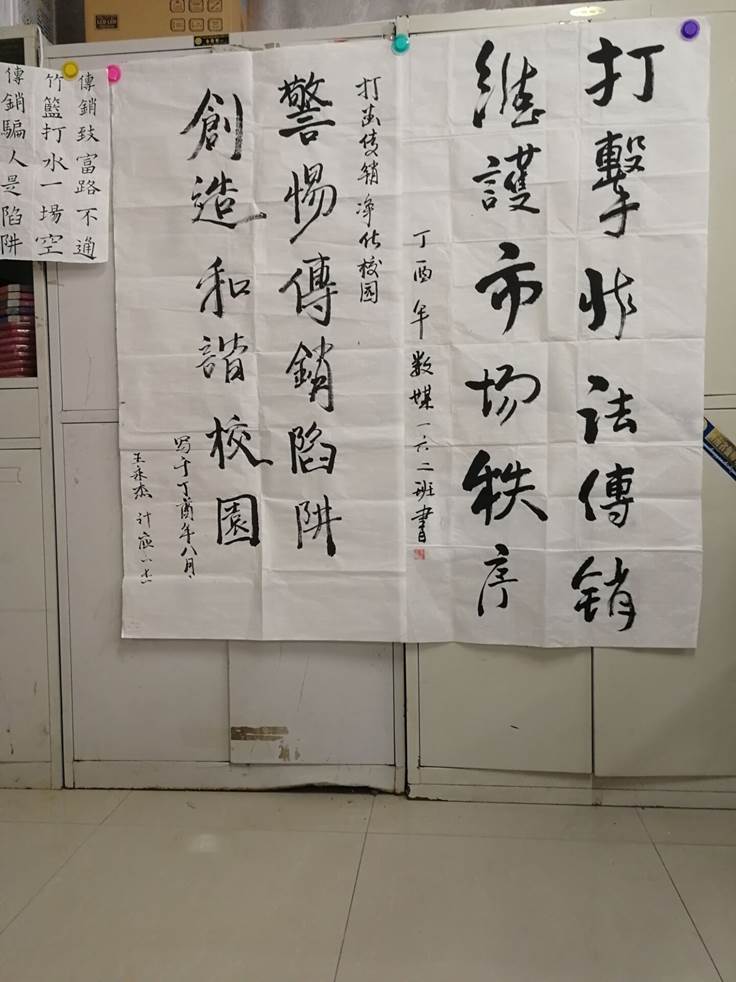 打擊非法傳銷
維護市场秩序
丁酉年数媒一六二班書
打击传銷净化校园
警惕傳銷陷阱
創造和諧校園
写于丁酉年八月
计应
傳銷致富路不通
竹籃打水一場空
傳銷騙人是陷阱